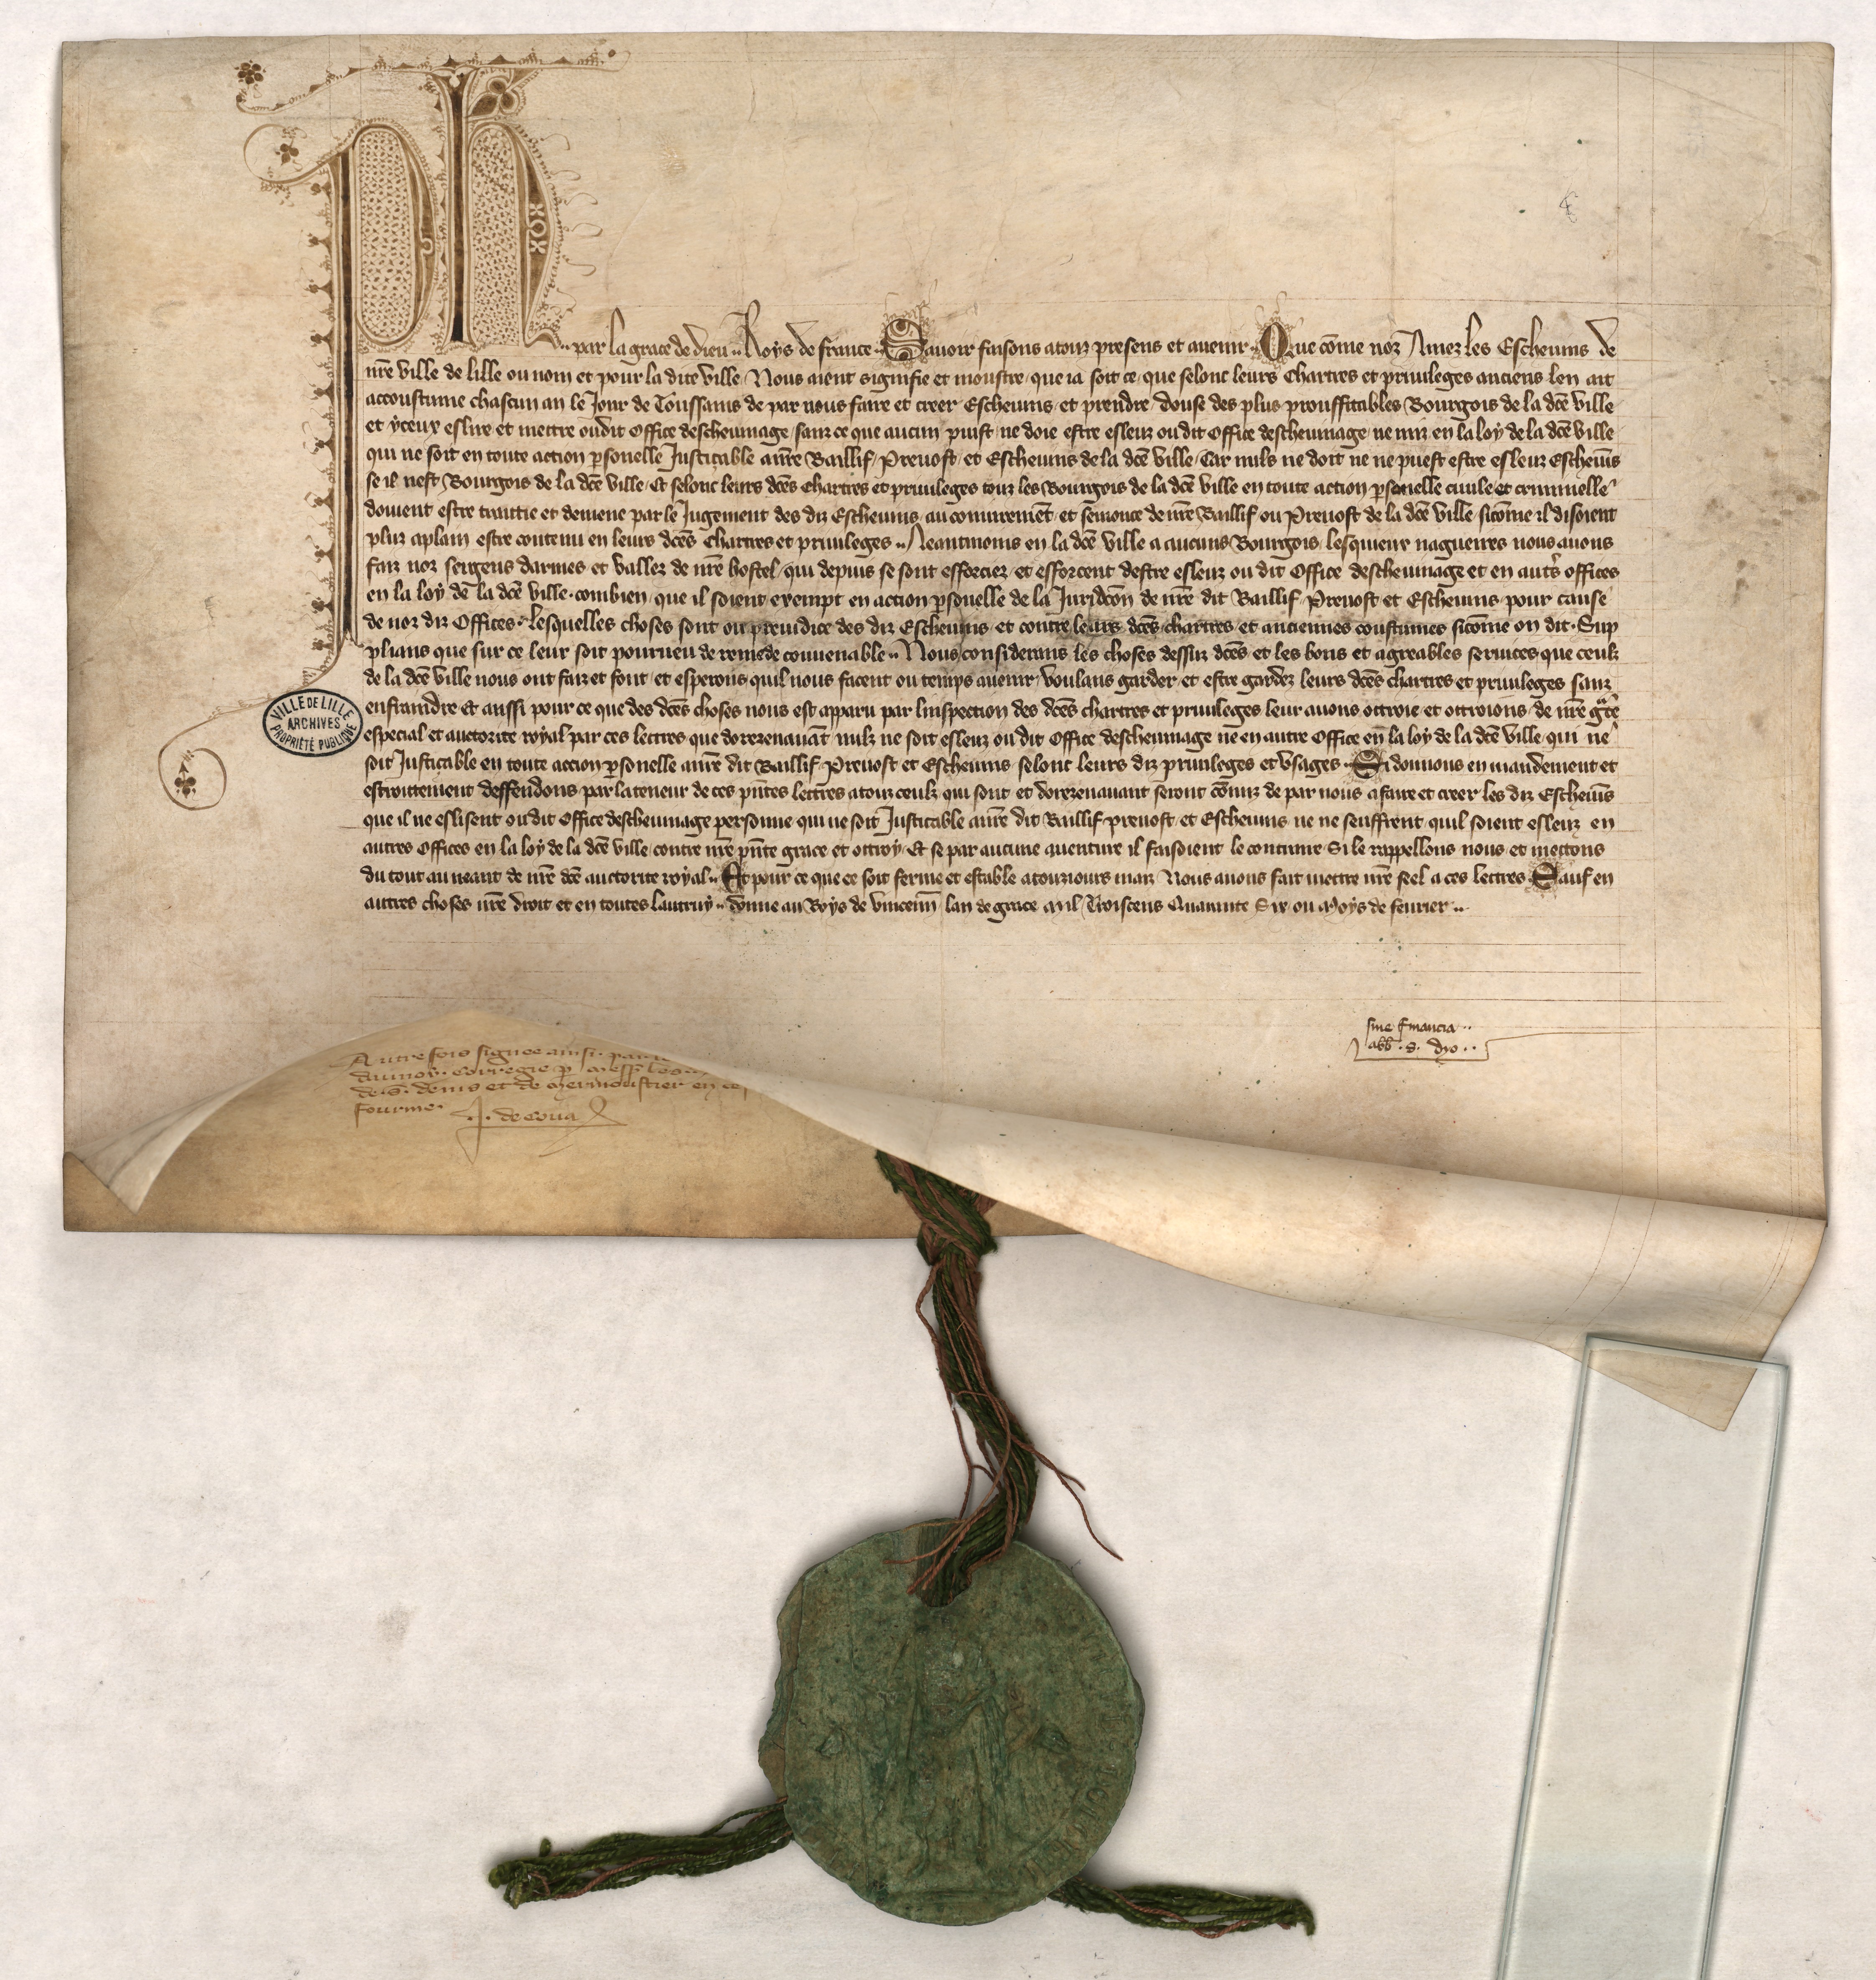 Ph par la grace de dieu Roys de france Sauoir faisons a touz presens et auenir Que cõme noz Amez les Escheuins de
nrẽ ville de lille ou nom et pour la dite ville Nous aient signifie et monstre que ia soit ce que selonc leurs Chartres et priuileges anciens len ait
accoustume chascun an le Jour de Toussains de par nous faire et creer Escheuins et prendre douse des plus prouffitables Bourgois de la dcẽ ville
et yceux eslire et mettre oudit Office descheuinage sanz ce que aucun puist ne doie estre esleuz ou dit Office descheuinage ne mis en la loy de la dcẽ ville
qui ne soit en toute action psonelle Justicable a nrẽ Baillif Preuost et Escheuins de la dcẽ ville Car nuls ne doit ne ne puest estre esleuz Escheuis
se il nest Bourgois de la dcẽ ville Et selonc leurs dcẽs Chartres et priuileges touz les Bourgois de la dcẽ ville en toute action psonelle ciuile et criminelle
doiuent estre traittie et demene par le Jugement des diz Escheuins au coniuremẽt et semonce de nrẽ Baillif ou Preuost de la dcẽ ville sicõme il disoient
pluz aplain estre contenu en leurs dcẽs Chartres et priuileges Neantmoins en la dcẽ ville a aucuns Bourgois lesquieux nagueires nous auons
faiz noz sergens darmes et vallez de nrẽ hostel qui depuis se sont efforciez et efforcent destre esleuz ou dit Office descheuinage et en autˢ offices
en la loy de la dcẽ ville combien que il soient exempt en action psonelle de la Juridcõn de nrẽ dit Baillif Preuost et Escheuins pour cause
de noz diz Offices Lesquelles choses sont ou preiudice des diz Escheuins et contre leurs dcẽs chartres et anciennes coustumes sicõme on dit Sup
plians que sur ce leur soit pourueu de remede conuenable Nous considerans les choses dessuz dcẽs et les bons et agreables seruices que ceulz
de la dcẽ ville nous ont faiz et font et esperons quil nous facent ou temps auenir voulans garder et estre gardez leurs dcẽs chartres et priuileges sanz
enfraindre Et aussi pour ce que des dcẽs choses nous est apparu par linspection des dcẽs chartres et priuileges leur auons ottroie et ottroions de nrẽ gᵃce
especial et auctorite royal par ces lettres que dorezenauãt nulz ne soit esleuz ou dit Office descheuinage ne en autre Office en la loy de la dcẽ ville qui ne
soit Justicable en toute accion psonelle a nrẽ dit Baillif Preuost et Escheuins selonc leurs diz priuileges et vsages Si donnons en mandement et
estroittement deffendons par la teneur de ces pñtes lettres a touz ceulz qui sont et dorezenauant seront cõmiz de par nous a faire et creer les diz Escheuĩs
que il ne eslisent oudit Office descheuinage personne qui ne soit Justicable a nrẽ dit Baillif preuost et Escheuins ne ne seuffrent quil soient esleuz en
autres Offices en la loy de la dcẽ ville contre nrẽ pñte grace et ottroy Et se par aucune auenture il faisoient le contraire Si le rappellons nous et mettons
du tout au neant de nrẽ dcẽ auctorite royal Et pour ce que ce soit ferme et estable a touziours maiz Nous auons fait mettre nrẽ seel a ces lettres Sauf en
autres choses nrẽ droit et en toutes lautruy donne au Boys de vincenñ lan de grace Mil Troiscens Quarante Six ou Moys de feurier
VILLE DE LILLE
ARCHIVES
PROPRIÉTÉ PUBLIQUE
sine financia
abb. s. dyo.
Autrefois signee ainsi par
corregie p mess les
de S. denis et de Mermoustier en ce
fourme
J. de Cona